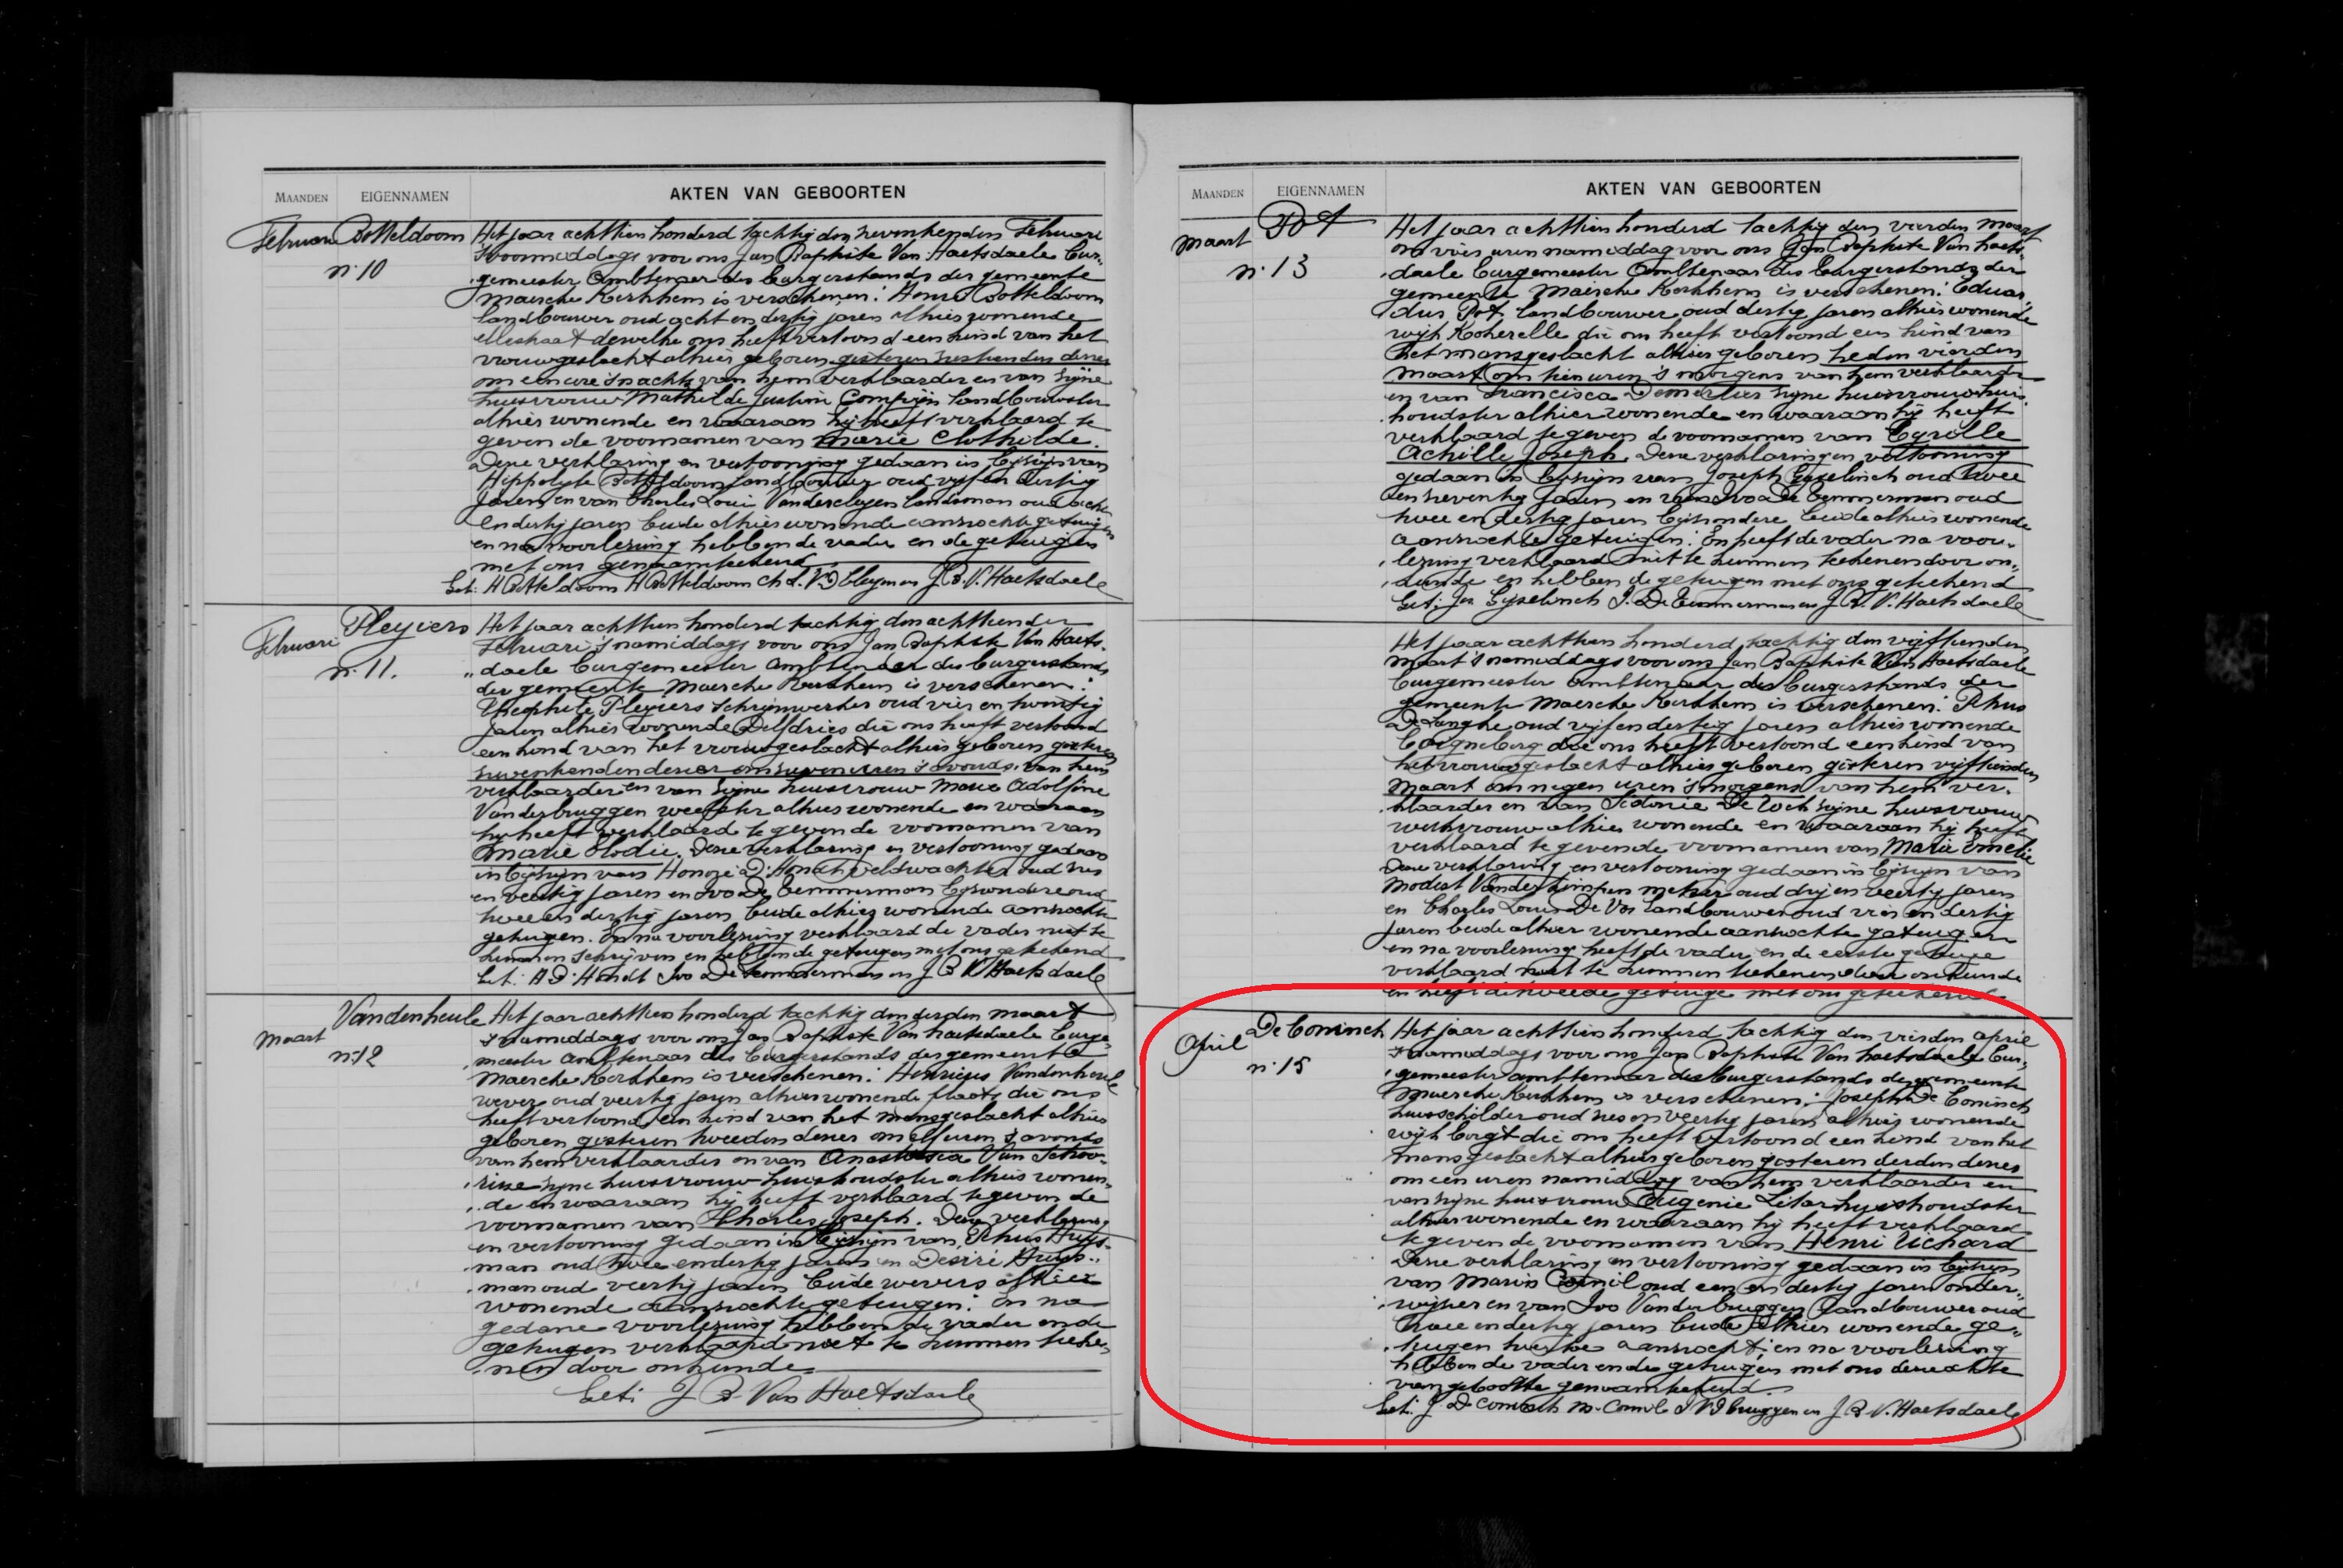 MAANDEN EIGENNAMEN AKTEN VAN GEBOORTEN
Februari Botteldoorn
n: 10
Het jaar achttien honderd tachtig den zeventienden Februari
'svoormiddags voor ons Jan Baptiste Van Haetsdaele Bur-
gemeester Ambtenaar des burgerstands der gemeente
Maercke Kerkhem is verschenen: Henri Botteldoorn
landbouwer oud acht en dertig jaren alhier wonende
dewelke ons heeft vertoond een kind van het
vrouwgeslacht alhier geboren gisteren zestienden dezer
om een ure 's nachts van hem verklaarder en van zijne
huisvrouw Mathilde Justine Compijn landbouwster
alhier wonende en waaraan hij heeft verklaard te
geven de voornamen van Marie Clothilde.
Deze verklaring en vertooning gedaan in bijzijn van
Hippolyte Botteldoorn landbouwer oud vijf en dertig
jaren en van Charles Louis Vandercleyen landsman oud acht
en dertig jaren beide alhier wonende aanzochte getuigen
en na voorlezing hebben de vader en de getuigen
met ons genaamteekend
Get: H Botteldoorn H Botteldoorn Ch L. VDCleyen en J. B. V. Haetsdaele
Februari Pleyiers
n: 11.
Het jaar achttien honderd tachtig den achttienden
Februari 's namiddags voor ons Jan Baptiste Van Haets-
daele burgemeester ambtenaar des burgerstands
der gemeente Maercke Kerkhem is verschenen:
Theophile Pleyiers schrijnwerker oud vier en twintig
jaren alhier wonende Delfdries die ons heeft vertoond
een kind van het vrouwgeslacht alhier geboren gisteren
zeventienden dezer om zeven uren 's avonds van hem
verklaarder en van zijne huisvrouw Marie Adolfine
Vanderbruggen weefster alhier wonende en waaraan
hij heeft verklaard te geven de voornamen van
Marie Elodie. Deze verklaring en vertooning gedaan
in bijzijn van Honoré D'Hondt veldwachter oud zes
en veertig jaren en Ivo De Temmerman bijzondere oud
twee en dertig jaren beide alhier wonende aanzochte
getuigen. En na voorlezing verklaard de vader niet te
kunnen schrijven en hebben de getuigen met ons geteekend
Get: H D'Hondt Ivo De Temmerman en J B V Haetsdaele
Maart Vandenheule
n: 12
Het jaar achttien honderd tachtig den derden maart
's namiddags voor ons Jan Baptiste Van Haetsdaele burge-
meester ambtenaar des burgerstands der gemeente
Maercke Kerkhem is verschenen: Henricus Vandenheule
wever oud veertig jaren alhier wonende plaats die ons
heeft vertoond een kind van het mansgeslacht alhier
geboren gisteren tweeden dezer om elf uren 's avonds
van hem verklaarder en van Anastasia Van Schoo-
risse zijne huisvrouw huishoudster alhier wonen-
de en waaraan hij heeft verklaard te geven de
voornamen van Charles Joseph. Deze verklaring
en vertooning gedaan in bijzijn van Petrus Huys-
man oud twee en dertig jaren en Desiré Huys-
man oud veertig jaren beide wevers alhier
wonende aanzochte getuigen: En na
gedane voorlezing hebben de vader en de
getuigen verklaard niet te kunnen teeke-
nen door onkunde
Get: J B Van Haetsdaele
MAANDEN EIGENNAMEN AKTEN VAN GEBOORTEN
Maart Pot
n: 13
Het jaar achttien honderd tachtig den vierden maart
om vier uren namiddag voor ons Jan Baptiste Van Haets-
daele burgemeester Ambtenaar des burgerstands der
gemeente Maercke Kerkhem is verschenen: Eduar-
dus Pot landbouwer oud dertig jaren alhier wonende
wijk Kokerelle die ons heeft vertoond een kind van
het mansgeslacht alhier geboren heden vierden
maart om tien uren 's morgens van hem verklaarder
en van Francisca Demerlier zijne huisvrouw huis-
houdster alhier wonende en waaraan hij heeft
verklaard te geven de voornamen van Cyrille
Achille Joseph. Deze verklaring en vertooning
gedaan in bijzijn van Joseph Gyselinck oud twee
en zeventig jaren en van Ivo De Temmerman oud
twee en dertig jaren bijzondere beide alhier wonende
aanzochte getuigen: En heeft de vader na voor-
lezing verklaard niet te kunnen teekenen door on-
kunde en hebben de getuigen met ons geteekend
Get: Jos Gyselinck I. De Temmerman en J. B. V. Haetsdaele
Het jaar achttien honderd tachtig den vijftienden
maart 's namiddags voor ons Jan Baptiste Van Haetsdaele
burgemeester ambtenaar des burgerstands der
gemeente Maercke Kerkhem is verschenen: Petrus
De Langhe oud vijf en dertig jaren alhier wonende
die ons heeft vertoond een kind van
het vrouwgeslacht alhier geboren gisteren vijftienden
maart om negen uren 's morgens van hem ver-
klaarder en van Sidonie De Vock zijne huisvrouw
werkvrouw alhier wonende en waaraan hij heeft
verklaard te geven de voornamen van Maria Emelie
Deze verklaring en vertooning gedaan in bijzijn van
Modest Vanderstimpen metser oud drij en veertig jaren
en Charles Louis De Vos landbouwer oud vier en dertig
jaren beide alhier wonende aanzochte getuigen
en na voorlezing heeft de vader en de eerste getuige
verklaard niet te kunnen teekenen door onkunde
en heeft de tweede getuige met ons geteekend
April De Coninck
n: 15
Het jaar achttien honderd tachtig den vierden april
's namiddags voor ons Jan Baptiste Van Haetsdaele bur-
gemeester ambtenaar des burgerstands der gemeente
Maercke Kerkhem is verschenen: Joseph De Coninck
huisschilder oud zes en veertig jaren alhier wonende
wijk borgt die ons heeft vertoond een kind van het
mansgeslacht alhier geboren gisteren derden dezer
om een uren namiddag van hem verklaarder en
van zijne huisvrouw Eugenie Letor huishoudster
alhier wonende en waaraan hij heeft verklaard
te geven de voornamen van Henri Richard
Deze verklaring en vertooning gedaan in bijzijn
van Marin Cornil oud een en dertig jaren onder-
wijzer en van Ivo Vanderbruggen landbouwer oud
twee en dertig jaren beide alhier wonende ge-
tuigen hiertoe aanzocht; en na voorlezing
hebben de vader en de getuigen met ons deze akte
van geboorte genaamteekend.
Get: J De Coninck M. Cornil I VDbruggen en J. B. V. Haetsdaele